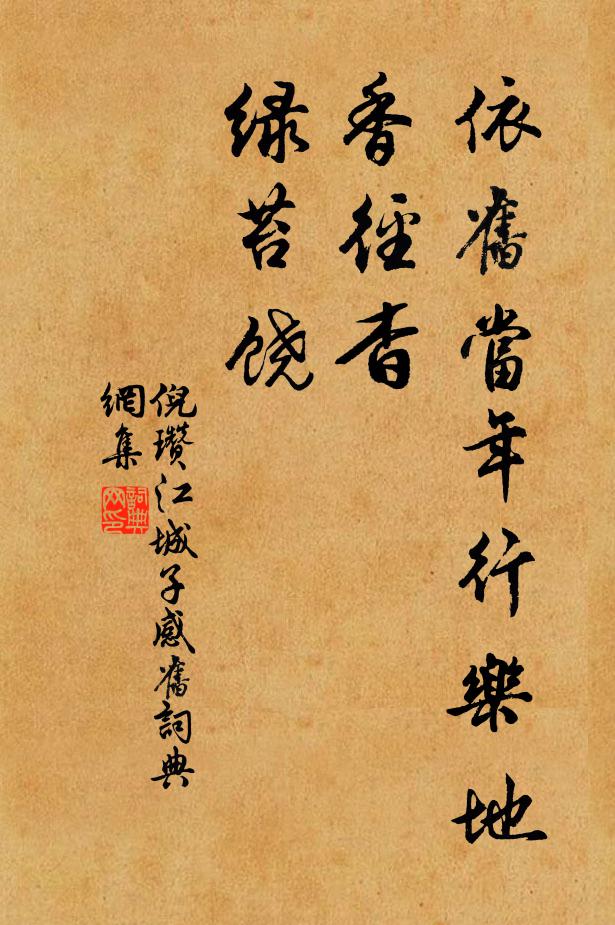 依舊當年行樂地
香徑杳
緑苔饒
倪瓚江城子感舊詞典
網集
詞典
网印